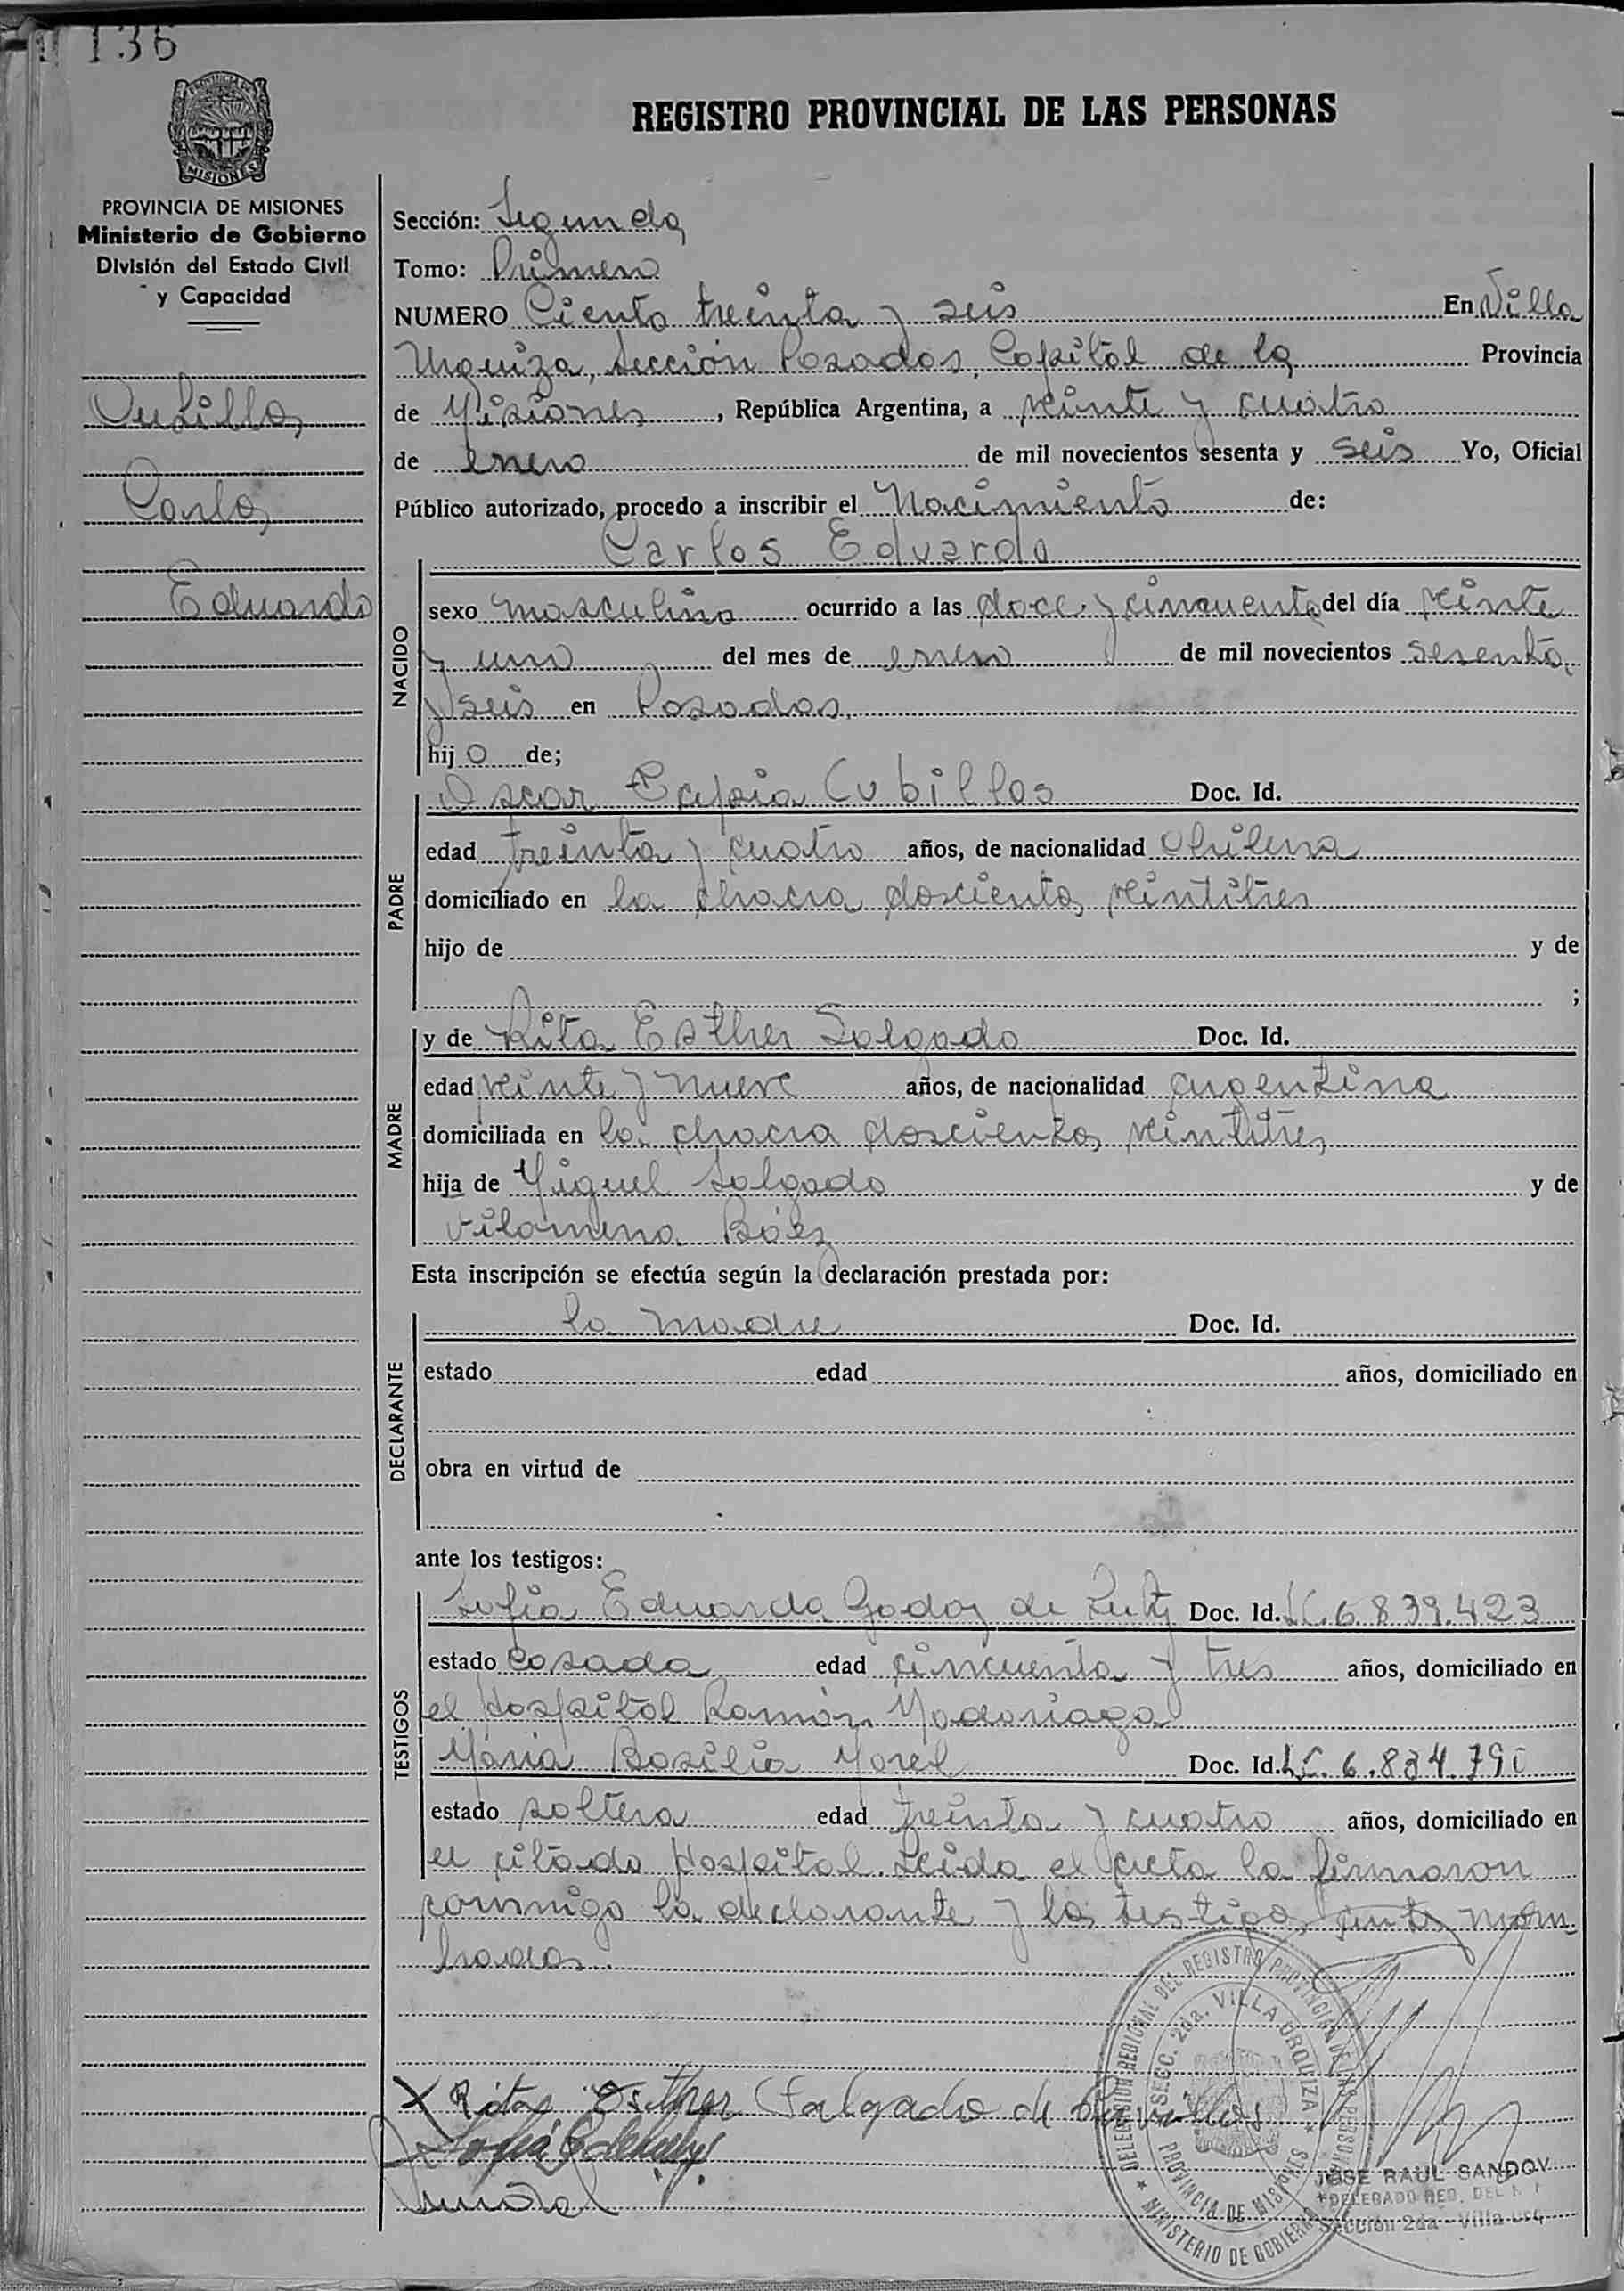 136
PROVINCIA DE
MISIONES
REGISTRO PROVINCIAL DE LAS PERSONAS
PROVINCIA DE MISIONES
Ministerio de Gobierno
División del Estado Civil
y Capacidad
Cubillos
Carlos
Eduardo
Sección: Segunda
Tomo: Primero
NUMERO Ciento treinta y seis En Villa
Urquiza, Sección Posadas, Capital de la Provincia
de Misiones, República Argentina, a veinte y cuatro
de enero de mil novecientos sesenta y seis Yo, Oficial
Público autorizado, procedo a inscribir el Nacimiento de:
Carlos Eduardo
NACIDO
sexo masculino ocurrido a las doce y cincuenta del día veinte
y uno del mes de enero de mil novecientos sesenta
y seis en Posadas.
hij o de;
PADRE
Oscar Tapia Cubillos Doc. Id.
edad treinta y cuatro años, de nacionalidad chilena
domiciliado en la chacra doscientos veintitres
hijo de y de
;
MADRE
y de Rita Esther Salgado Doc. Id.
edad veinte y nueve años, de nacionalidad argentina
domiciliada en la chacra doscientos veintitres
hija de Miguel Salgado y de
Vilomena Báez
Esta inscripción se efectúa según la declaración prestada por:
DECLARANTE
la madre Doc. Id.
estado edad años, domiciliado en
obra en virtud de
ante los testigos:
TESTIGOS
Sofía Eduarda Godoy de Doc. Id. LC. 6.839.423
estado casada edad cincuenta y tres años, domiciliado en
el Hospital Ramón Madariaga
María Basilia Morel Doc. Id. LC. 6.834.790
estado soltera edad treinta y cuatro años, domiciliado en
el citado Hospital. Leída el acta la firmaron
conmigo la declarante y los testigos nom
brados.
DELEGACION REGIONAL DEL REGISTRO PROVINCIAL DE LAS PERSONAS
SECC. 2da. VILLA URQUIZA
PROVINCIA DE MISIONES
MINISTERIO DE GOBIERNO
X Rita Esther Salgado de Cubillos
JOSE RAUL SANDOV
DELEGADO REG. DEL
Sección 2da - Villa Urq